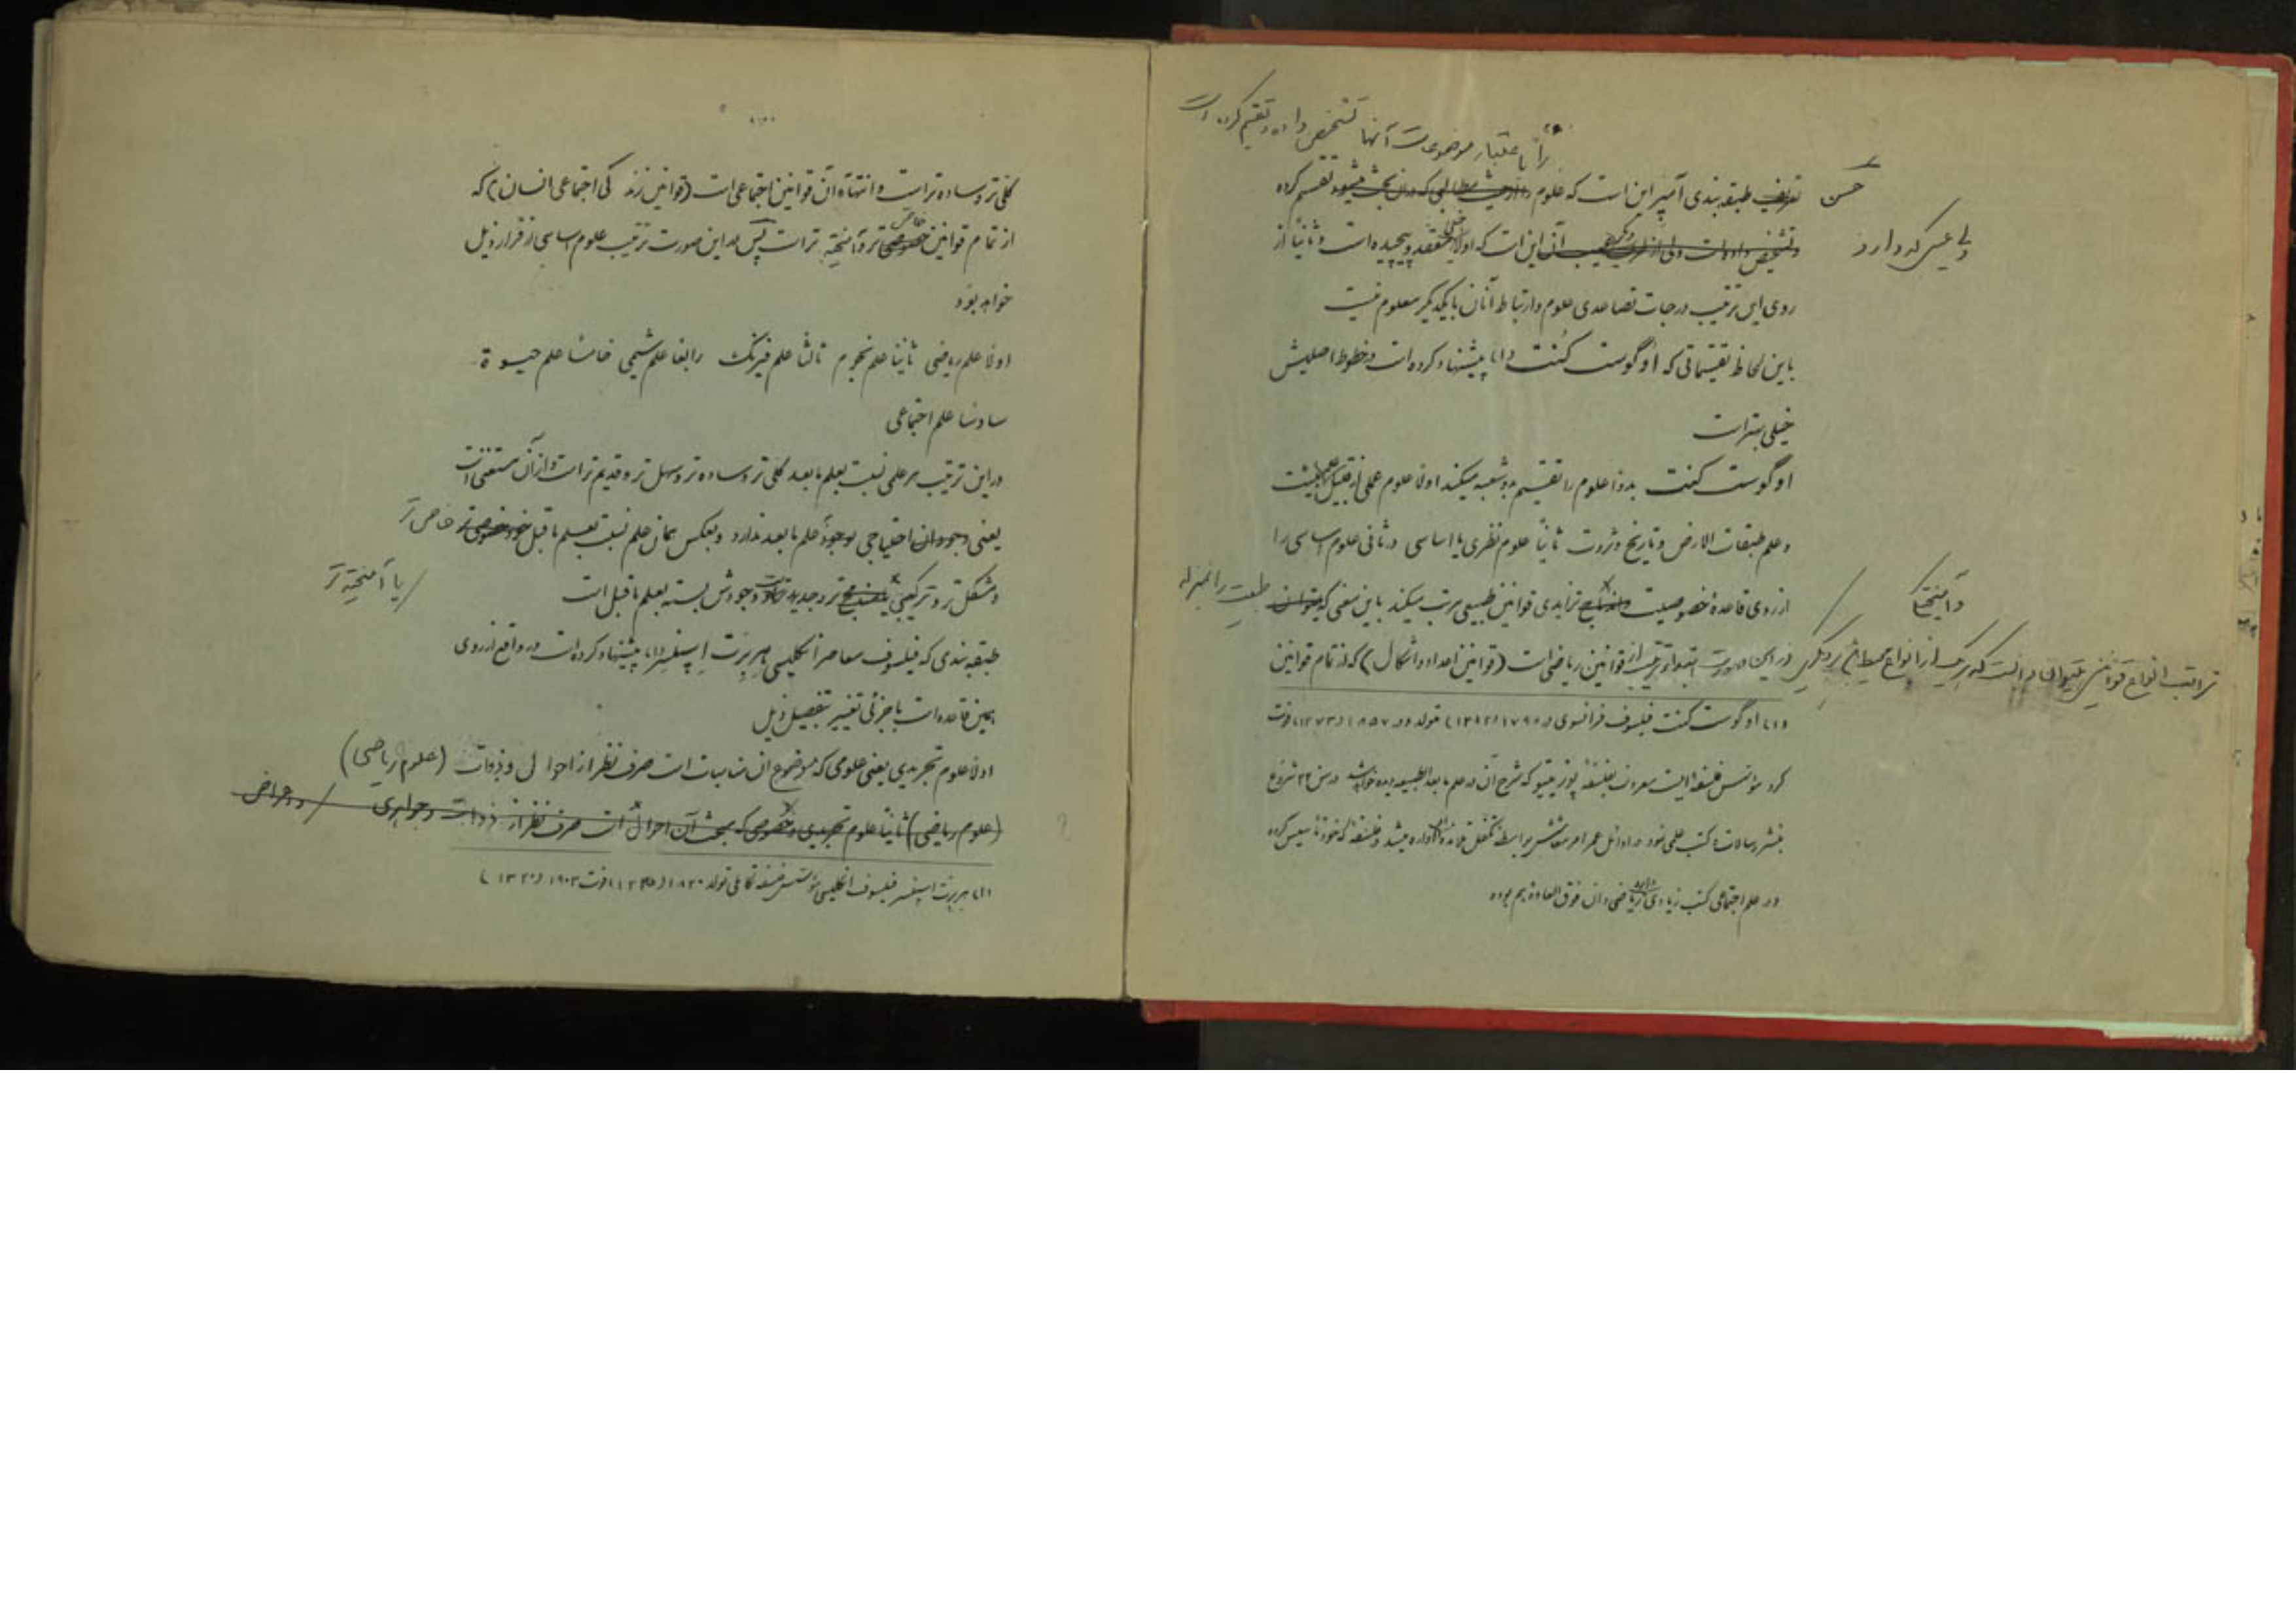 را باعتبار موضوعات آنها تشخیص داده و تقسیم کرده است
حسن
تعریف طبقه بندی آمپر این است که علوم را از حیث مطالبی که در آن بحث میشود تقسیم کرده
ولی عیبی که دارد
و تشخیص داده است ولی از طرف دیگر عیب آن این است که اولا خیلی معقد و پیچیده است و ثانیا از
روی این ترتیب درجات تصاعدی علوم و ارتباط آنان با یکدیگر معلوم نیست
باین لحاظ تقسیماتی که اوگوست کُنت (۱) پیشنهاد کرده است در خطوط اصلیش
خیلی بهتر است
اوگوست کنت بدوا علوم را تقسیم بدو شعبه میکند اولا علوم عملی از قبیل علم هیئت
و علم طبقات الارض و تاریخ و ثروت ثانیا علوم نظری یا اساسی در ثانی علوم اساسی را
و آمیختگی
از روی قاعدهٔ خصوصیت تزایدی قوانین طبیعی مرتب میکند باین معنی که میتوان طبیعت را بمنزله
مراتب انواع قوانین میتوان دانست که هریک از انواع محیط بر دیگری در این صورت ابتداء ترتیب از قوانین ریاضی است (قوانین اعداد و اشکال) که از تمام قوانین
(۱) اوگوست کنت فیلسوف فرانسوی در ۱۷۹۸ (۱۲۱۲) متولد و در ۱۸۵۷ (۱۲۷۳) فوت
کرد مؤسس فلسفه ایست معروف بفلسفه پوزیتیو که شرح آن در علم ما بعد الطبیعه دیده خواهد شد در سن ۲۴ شروع
بنشر رسالات و کتب علمی نمود در اوائل عمر امر معاشش بواسطه تکفل تلامذه اداره میشد و فلسفهٔ که خود تأسیس کرده
در علم اجتماعی کتب زیادی دارد ریاضی دان فوق العاده هم بوده
کلی تر و ساده تر است و انتهاء آن قوانین اجتماعی است (قوانین زندگی اجتماعی انسان) که
از تمام قوانین خاص تر و آمیخته تر است پس در این صورت ترتیب علوم اساسی از قرار ذیل
خواهد بود
اولا علم ریاضی ثانیا علم نجوم ثالثا علم فیزیک رابعا علم شیمی خامسا علم حیوة
سادسا علم اجتماعی
در این ترتیب هر علمی نسبت بعلم ما بعد کلی تر و ساده تر و سهل تر و قدیم تر است و از آن مستغنی است
یعنی وجود آن احتیاجی بوجود علم ما بعد ندارد و بعکس همان علم نسبت بعلم ما قبل خود خصوصی تر خاص تر
و مشکل تر و ترکیبی تر و جدید تر است و وجودش بسته بعلم ما قبل است
یا آمیخته تر
طبقه بندی که فیلسوف معاصر انگلیسی هِربِرت اِسپنسِر (۱) پیشنهاد کرده است در واقع از روی
همین قاعده است با جزئی تغییر بتفصیل ذیل
اولا علوم تجریدی یعنی علومی که موضوع آن مناسبات است صرف نظر از احوال و ذوات (علوم ریاضی)
(علوم ریاضی) ثانیا علوم تجریدی و خصوصی که مبحث آن احوال است صرف نظر از ذوات و جواهری و اعراض
(۱) هربرت اسپنسر فیلسوف انگلیسی مؤسس فلسفه تکاملی تولد ۱۸۲۰ (۱۲۳۵) فوت ۱۹۰۳ (۱۳۲۰)